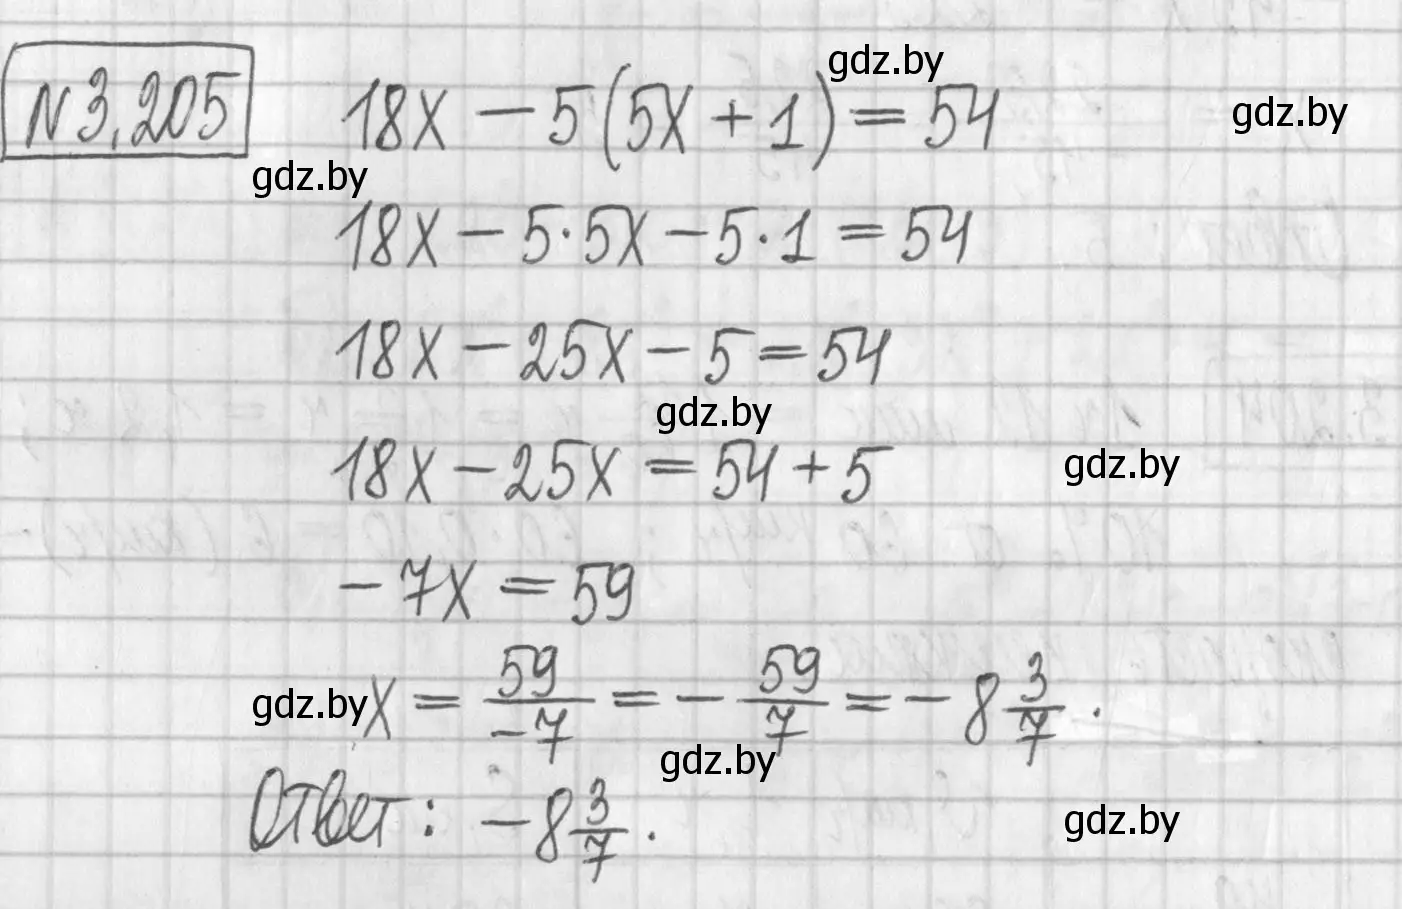 N 3,205 18x − 5(5x + 1) = 54
18x − 5·5x − 5·1 = 54
18x − 25x − 5 = 54
18x − 25x = 54 + 5
−7x = 59
x = 59/−7 = −59/7 = −8 3/7.
Ответ: −8 3/7.
gdz.by
gdz.by
gdz.by
gdz.by
gdz.by
gdz.by
gdz.by
gdz.by